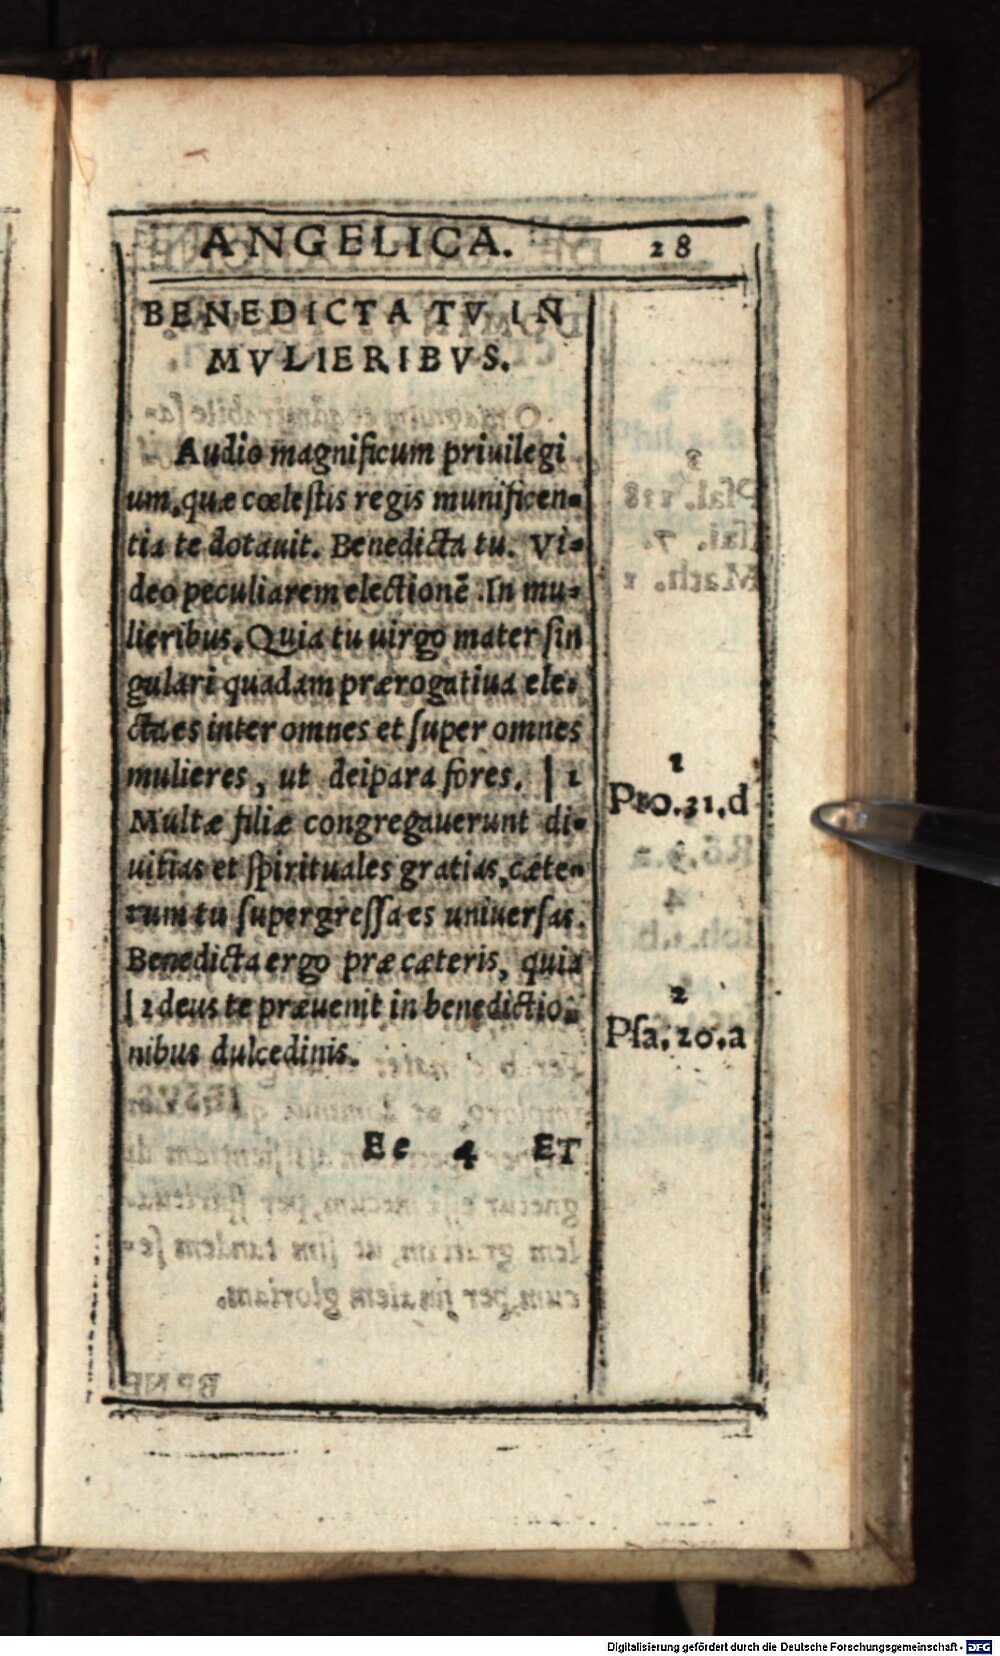 ANGELICA. 28
BENEDICTA TV IN
MVLIERIBVS.
Audio magnificum priuilegi
um, quæ cœlestis regis munificen-
tia te dotauit. Benedicta tu. Vi-
deo peculiarem electionẽ. In mu-
lieribus. Quia tu uirgo mater sin
gulari quadam prærogatiua ele-
cta es inter omnes et super omnes
mulieres, ut deipara fores. | 1
Multæ filiæ congregauerunt di-
uitias et spirituales gratias, cæte-
rum tu supergressa es uniuersas.
Benedicta ergo præ cæteris, quia
| 2 deus te præuenit in benedictio-
nibus dulcedinis.
1
Pro.31.d
2
Psa.20.a
Ee 4 ET
Digitalisierung gefördert durch die Deutsche Forschungsgemeinschaft - DFG